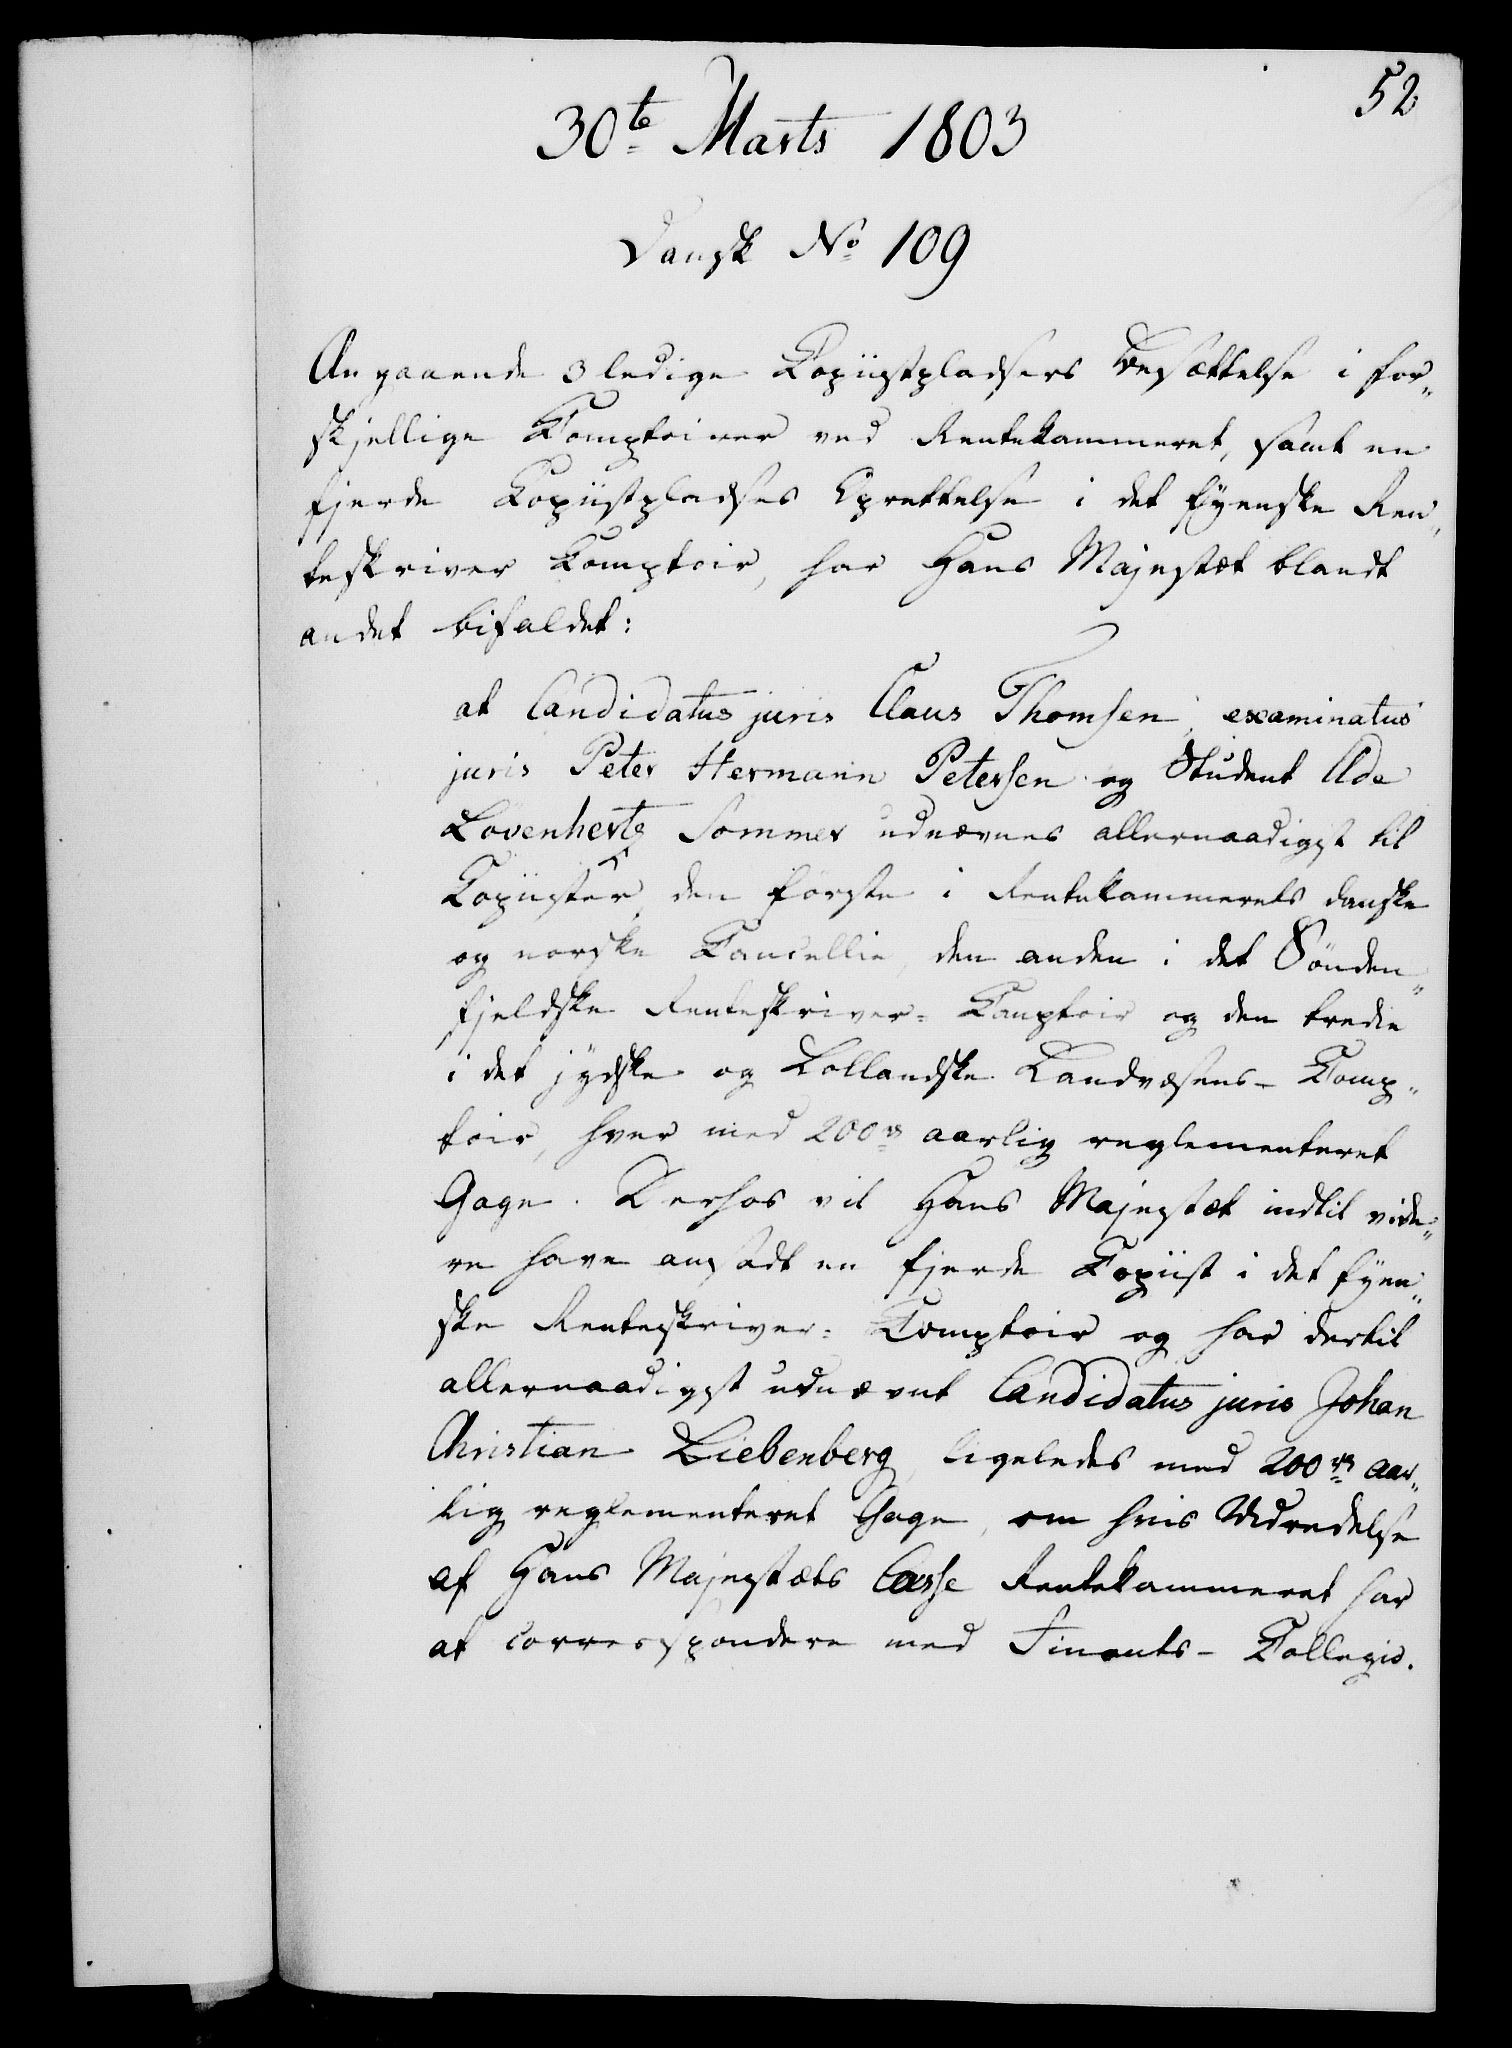 52
30te Marts 1803
Dansk No 109
Angaaende 3 ledige Copiistpladsers Besættelse i for„
skjellige Comptoirer ved Rentekammeret, samt en
fjerde Copiistpladses Oprettelse i det fyenske Ren„
teskriver Comptoir, har Hans Majestæt blandt
andet bifaldet:
at Candidatus juris Claus Thomsen, examinatus
juris Peter Hermann Petersen og Student Ude
Lövenhertz Sommer udnævnes allernaadigst til
Copiister, den förste i Rentekammerets danske
og norske Cancellie, den anden i det Sönden„
fjeldske Renteskriver= Comptoir og den tredie
i det jydske og Lollandske Landvæsens- Comp„
toir, hver med 200 rd aarlig reglementeret
Gage. Derhos vil Hans Majestæt indtil vide„
re have ansadt en fjerde Copiist i det fyen„
ske Renteskriver= Comptoir og har dertil
allernaadigst udnævnt Candidatus juris Johan
Christian Liebenberg, ligeledes med 200 rd aar„
lig reglementeret Gage, om hvis Udredelse
af Hans Majestæts Casse Rentekammeret har
at correspondere med Finants- Collegio.